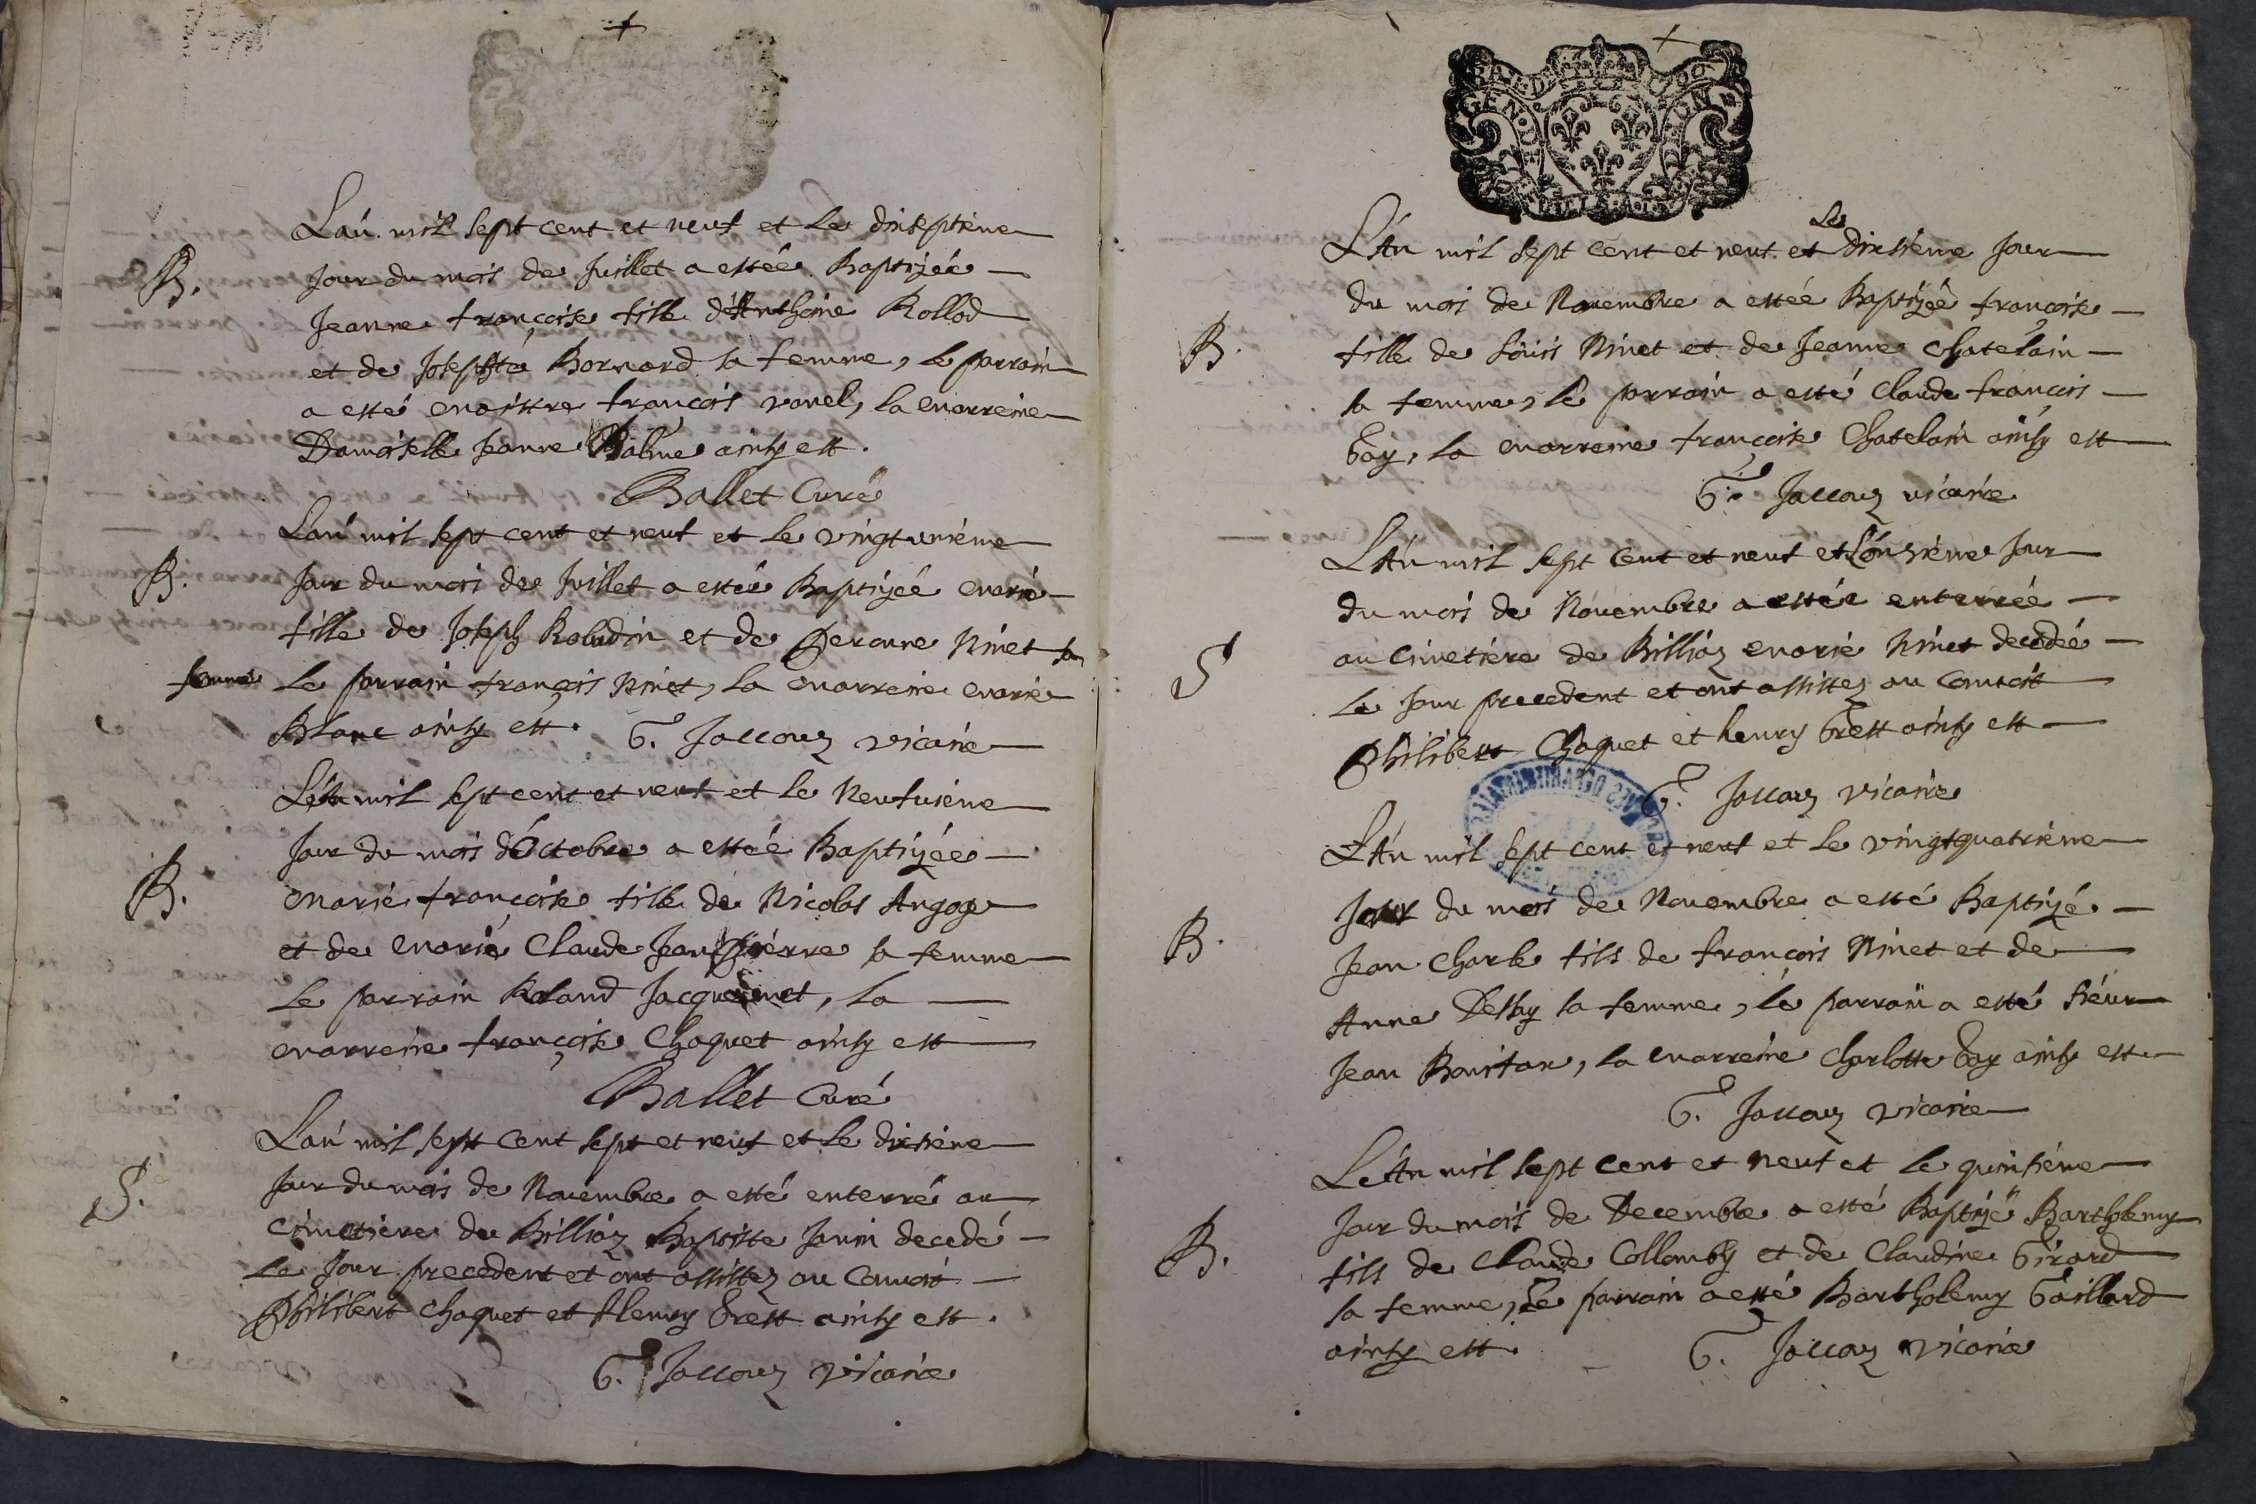 L'an mil sept cent et neuf et le dixseptiéme
B. Jour du mois de Juillet a estée Baptizée
Jeanne françoise fille d'Anthoine Rollod
et de Josephte Bornard sa femme, le parrain
a esté maistre françois vanel, la marreine
Damoiselle Jeanne Balme ainsy est.
Ballet Curé
L'an mil sept cent et neuf et le vingtuniéme
B. Jour du mois de Juillet a estée Baptizée marie
fille de Joseph Robadin et de Peronne Ninet sa
femme Le parrain françois Ninet, la marreine marie
Blanc ainsy est. G. Jaccouz vicaire
L'An mil sept cent et neuf et le Neufviéme
Jour du mois d'Octobre a estée Baptizée
B. marie françoise fille de Nicolas Angoge
et de marie Claude Jean Pierre sa femme
Le parrain Roland Jacquemet, la
marreine françoise Choquet ainsy est
Ballet Curé
L'an mil sept cent sept et neuf et le dixiéme
S. Jour du mois de Novembre a esté enterré au
cimetiere de Billiaz Baptiste Janin decedé
Le Jour precedent et ont assistez au Convoit
Philibert Choquet et Henry Brest ainsy est.
G. Jaccouz vicaire
L'An mil sept cent et neuf et Le dixiéme Jour
du mois de Novembre a estée Baptizée françoise
B. fille de Loüis Ninet et de Jeanne Chatelain
sa femme, le parrain a esté Claude françois
Gay, la marreine françoise Chatelain ainsy est
G. Jaccouz vicaire
L'An mil sept cent et neuf et L'onziéme Jour
du mois de Novembre a estée enterrée
S au cimetiere de Billiaz marie Ninet decedée
Le Jour precedent et ont assistez au Convoit
Philibert Choquet et henry Brest ainsy est
G. Jaccouz vicaire
L'An mil sept cent et neuf et le vingtquatriéme
Jour du mois de Novembre a esté Baptizé
B. Jean Charle fils de françois Ninet et de
Anne Dessy sa femme, le parrain a esté sieur
Jean Bonifax, la marreine Charlotte Gay ainsy est
G. Jaccouz vicaire
L'An mil sept cent et neuf et le quinziéme
Jour du mois de Decembre a esté Baptizé Bartholemy
B. fils de Claude Collomby et de Claudine Girard
sa femme, Le parrain a esté Bartholemy Gaillard
ainsy est. G. Jaccouz vicaire